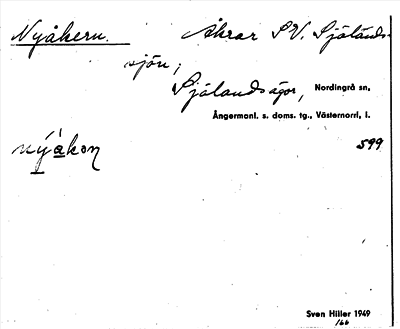 Nyåkern. Åkrar S.V. Själands-
sjön;
Själandsågor, Nordingrå sn,
Ångermanl. s. doms. tg., Västernorrl. l.
nýakon 599
Sven Hiller 1949
166